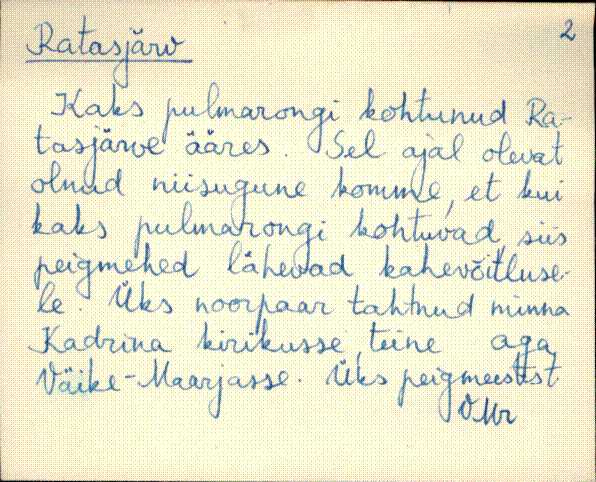 2
Ratasjärv
Kaks pulmarongi kohtunud Ra-
tasjärve ääres. Sel ajal olevat
olnud niisugune komme, et kui
kaks pulmarongi kohtuvad, siis
peigmehed lähevad kahevõitluse-
le. Üks noorpaar tahtnud minna
Kadrina kirikusse, teine aga
Väike-Maarjasse. Üks peigmeestest
VMr